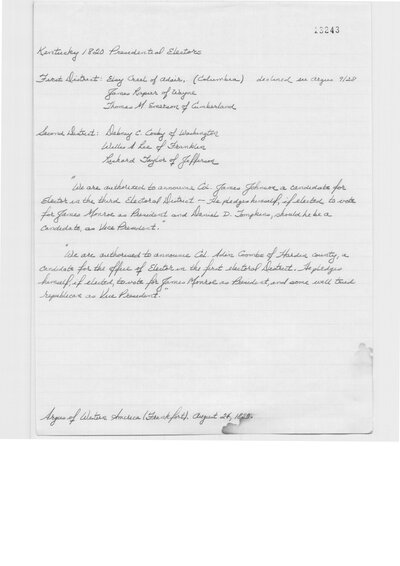 13243
Kentucky 1820 Presidential Electors
First District: Elroy Creel of Adair, (Columbia) declined in Argus 9/28
James Rapier of Wayne
Thomas M. Emerson of Cumberland
Second District: Dabney C. Cosby of Washington
Willis A. Lee of Franklin
Richard Taylor of Jefferson
"We are authorised to announce Col. James Johnson, a candidate for
Elector in the third Electoral District – He pledges himself, if elected to vote
for James Monroe as President and Daniel D. Tompkins, should he be a
candidate, as Vice President."
"We are authorised to announce Col. Adin Coombs of Hardin county, a
candidate for the office of Elector in the first electoral District. He pledges
himself, if elected, to vote for James Monroe as President, and some well tried
republican as Vice President."
Argus of Western America (Frankfort). August 24, 1820.